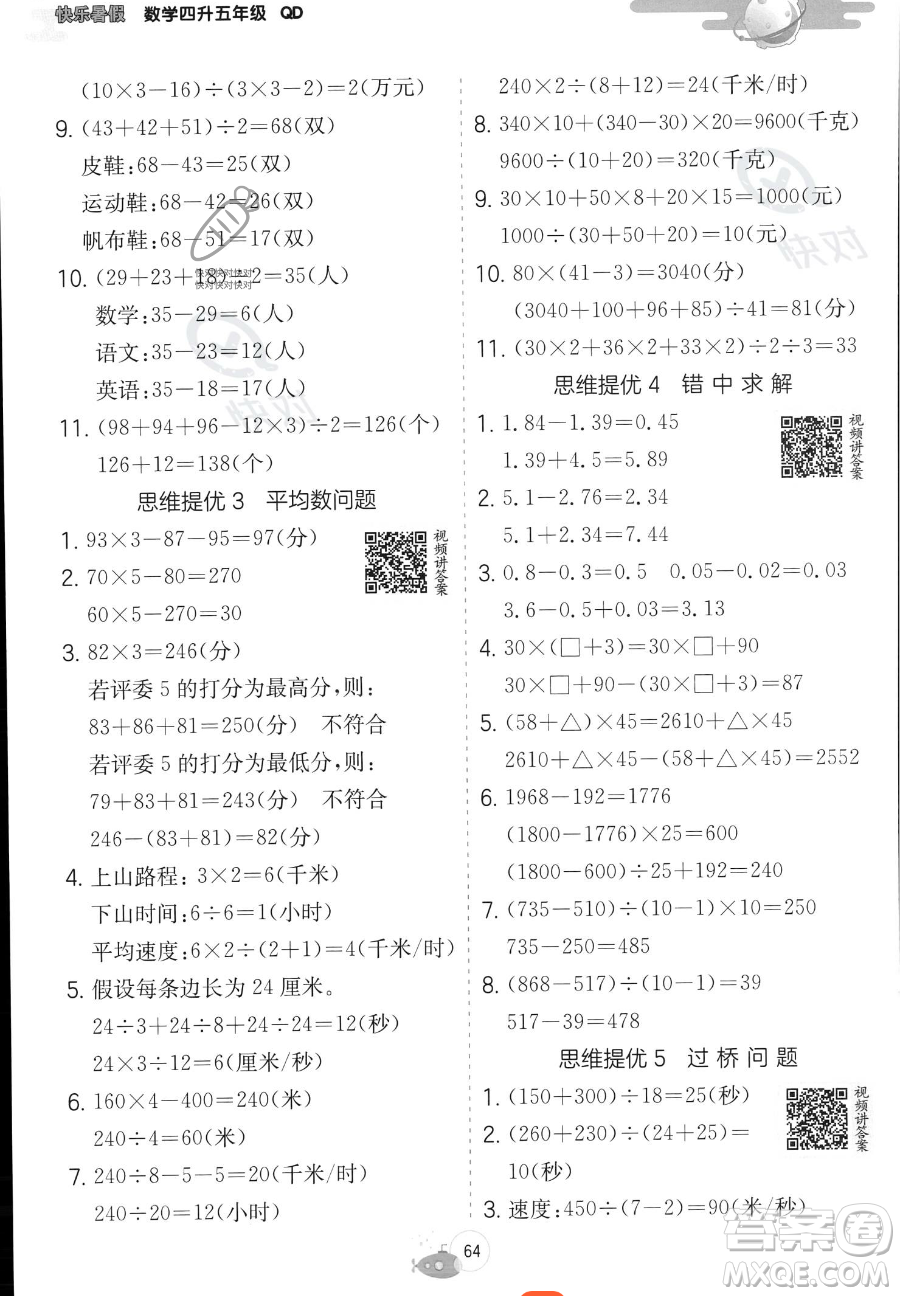 快乐暑假 数学四升五年级 QD
(10×3－16)÷(3×3－2)＝2(万元)
9. (43＋42＋51)÷2＝68(双)
皮鞋:68－43＝25(双)
运动鞋:68－42＝26(双)
帆布鞋:68－51＝17(双)
10. (29＋23＋18)÷2＝35(人)
快对快对快对
快对快对快对
数学:35－29＝6(人)
语文:35－23＝12(人)
英语:35－18＝17(人)
快对
11. (98＋94＋96－12×3)÷2＝126(个)
126＋12＝138(个)
思维提优 3 平均数问题
视频讲答案
1. 93×3－87－95＝97(分)
2. 70×5－80＝270
60×5－270＝30
3. 82×3＝246(分)
若评委 5 的打分为最高分,则:
83＋86＋81＝250(分) 不符合
若评委 5 的打分为最低分,则:
79＋83＋81＝243(分) 不符合
246－(83＋81)＝82(分)
4. 上山路程: 3×2＝6(千米)
下山时间:6÷6＝1(小时)
平均速度:6×2÷(2＋1)＝4(千米/时)
5. 假设每条边长为 24 厘米。
24÷3＋24÷8＋24÷24＝12(秒)
24×3÷12＝6(厘米/秒)
6. 160×4－400＝240(米)
240÷4＝60(米)
7. 240÷8－5－5＝20(千米/时)
240÷20＝12(小时)
240×2÷(8＋12)＝24(千米/时)
8. 340×10＋(340－30)×20＝9600(千克)
9600÷(10＋20)＝320(千克)
9. 30×10＋50×8＋20×15＝1000(元)
1000÷(30＋50＋20)＝10(元)
快对
10. 80×(41－3)＝3040(分)
(3040＋100＋96＋85)÷41＝81(分)
11. (30×2＋36×2＋33×2)÷2÷3＝33
思维提优 4 错中求解
视频讲答案
1. 1.84－1.39＝0.45
1.39＋4.5＝5.89
2. 5.1－2.76＝2.34
5.1＋2.34＝7.44
3. 0.8－0.3＝0.5 0.05－0.02＝0.03
3.6－0.5＋0.03＝3.13
4. 30×(□＋3)＝30×□＋90
30×□＋90－(30×□＋3)＝87
5. (58＋△)×45＝2610＋△×45
2610＋△×45－(58＋△×45)＝2552
6. 1968－192＝1776
(1800－1776)×25＝600
(1800－600)÷25＋192＝240
7. (735－510)÷(10－1)×10＝250
735－250＝485
8. (868－517)÷(10－1)＝39
517－39＝478
思维提优 5 过桥问题
视频讲答案
1. (150＋300)÷18＝25(秒)
2. (260＋230)÷(24＋25)＝
10(秒)
3. 速度: 450÷(7－2)＝90(米/秒)
64
答案圈
MXQE.COM